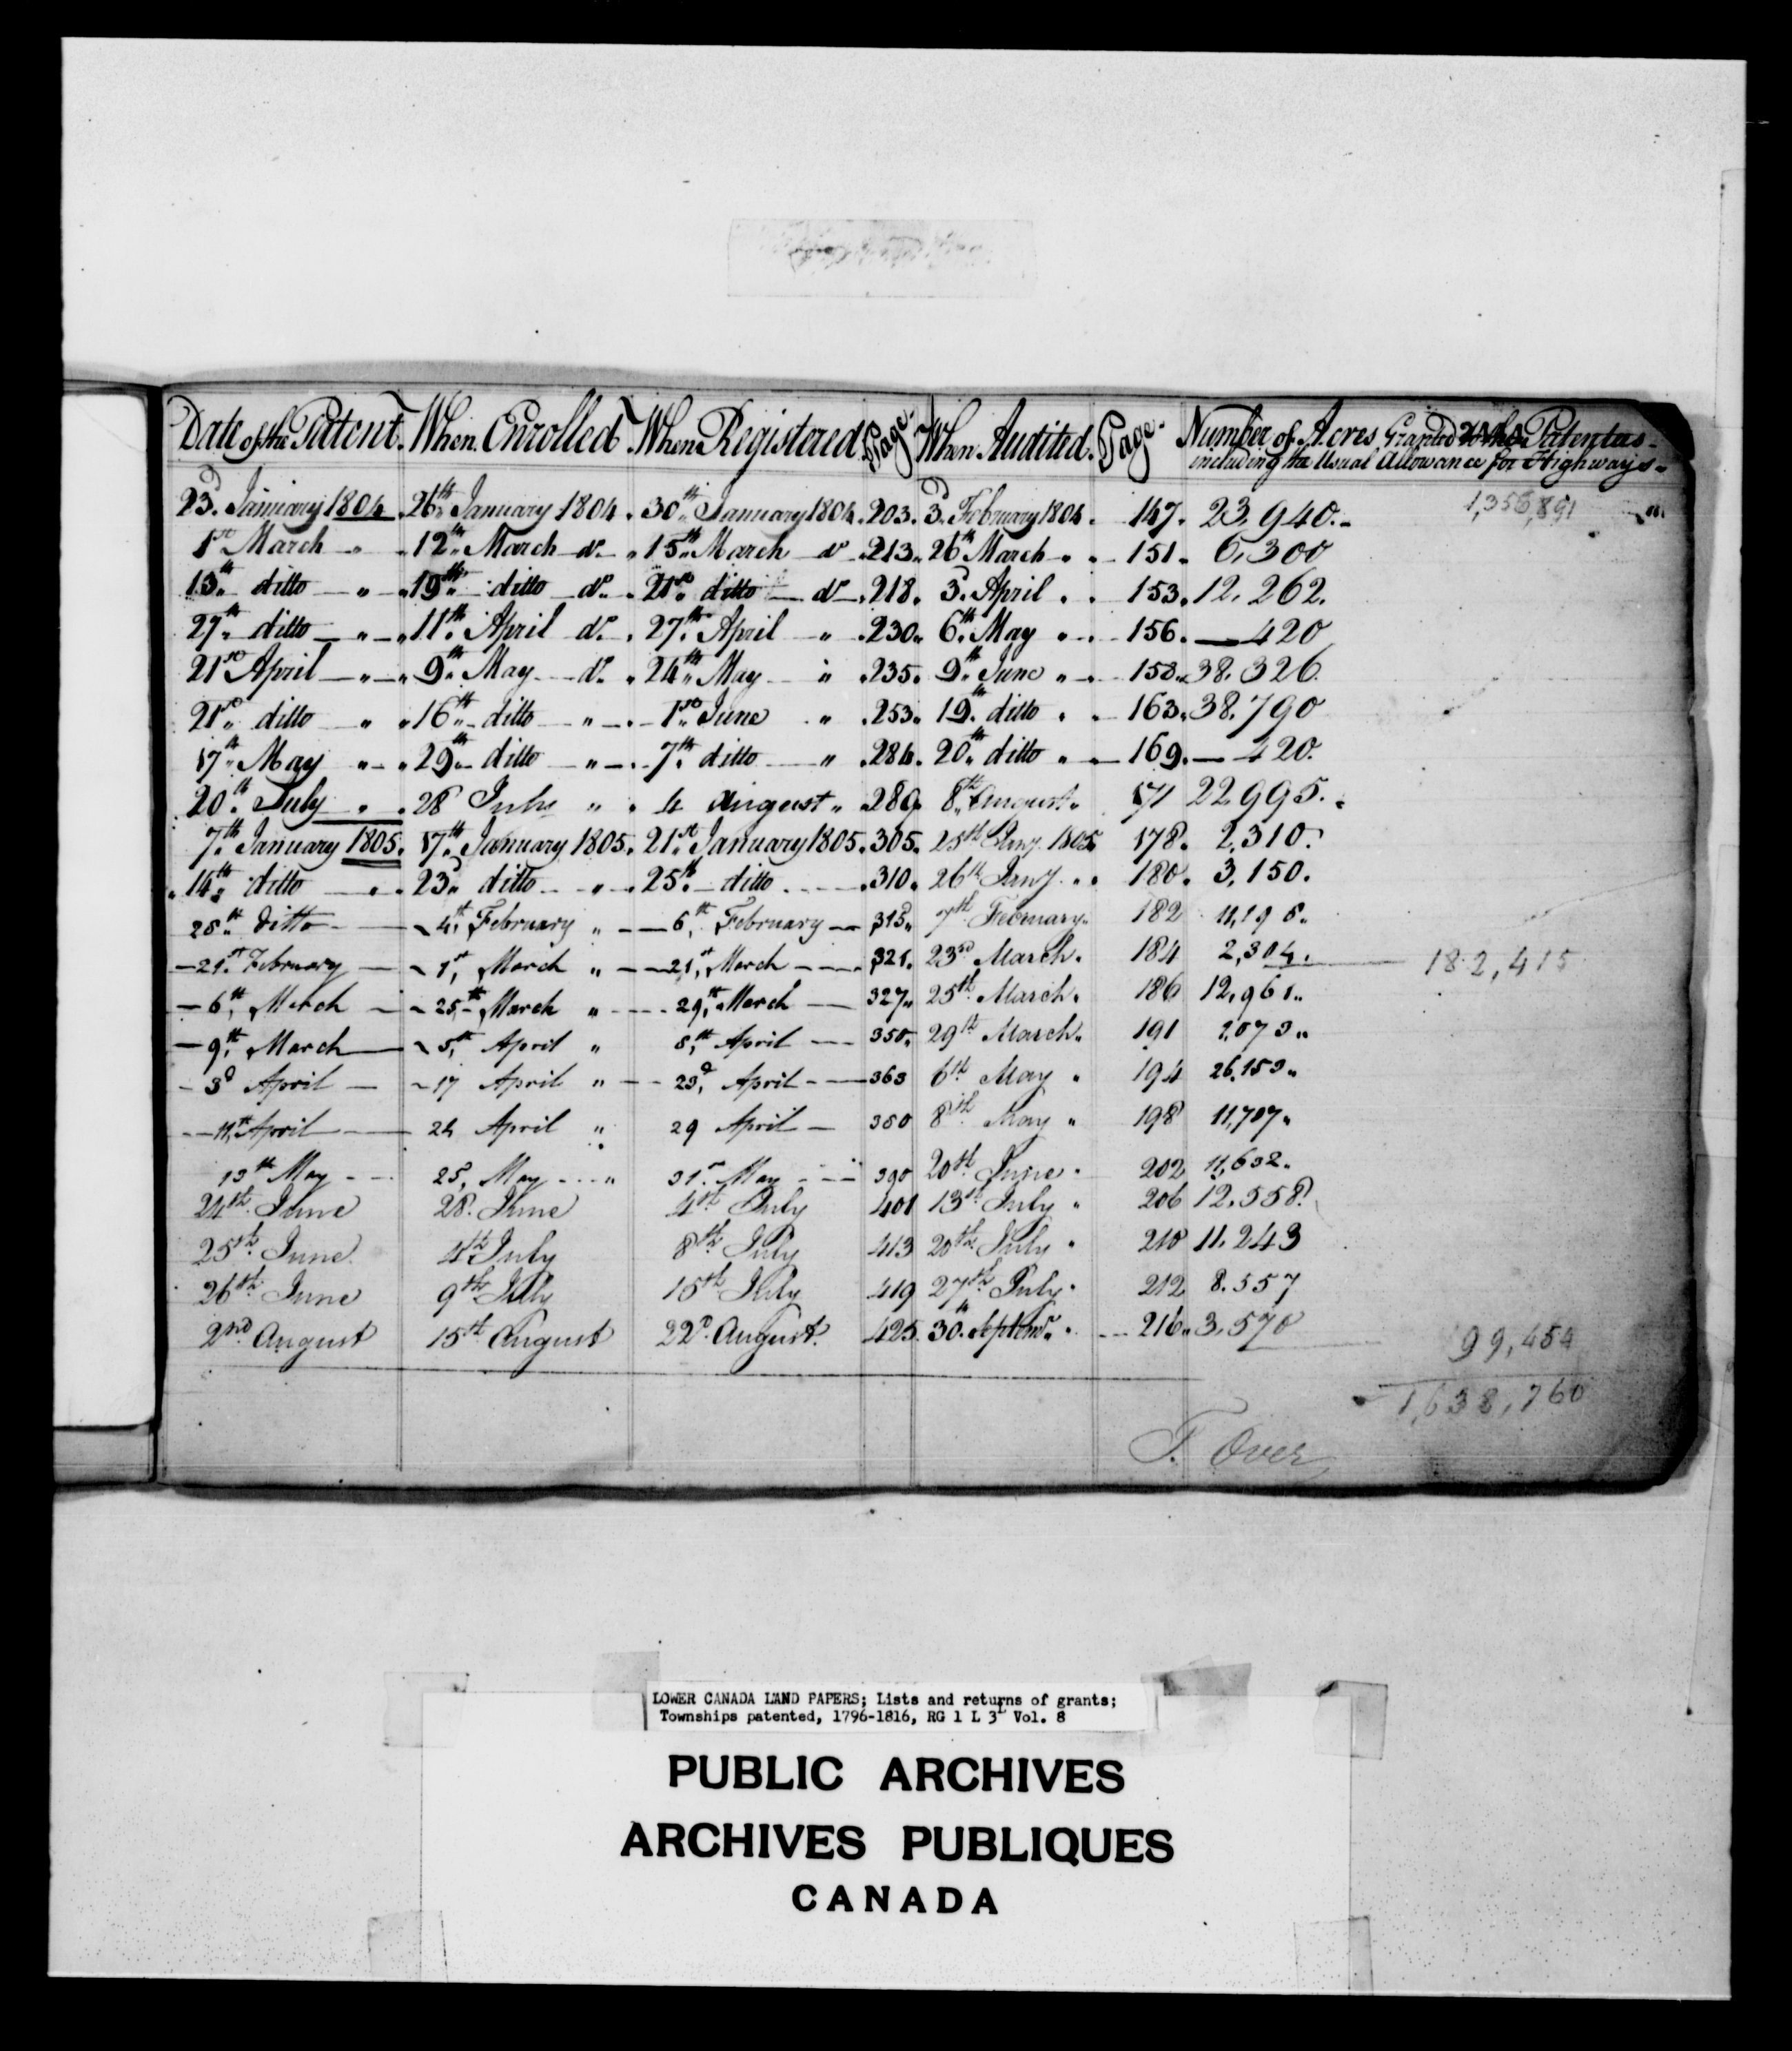 Date of the Patent. When Enrolled When Registered Page. When Audited. Page. Number of Acres Granted to the Patentees
including the Usual Allowance for Highways
23d January 1804. 26th January 1804. 30th January 1804. 203. 3d February 1804. 147. 23,940. 1,356,891
1st March " 12th March do 15th March do 213. 26th March " 151. 6,300
13th ditto " 19th ditto do 21st ditto do 218. 3d April 153. 12,262.
27th ditto " 11th April do 27th April " 230. 6th May " 156. 420
21st April " 9th May do 24th May " 235. 9th June " 158. 38,326.
21st ditto " 16th ditto " 1st June " 253. 19th ditto 163. 38,790
17th May " 29th ditto " 7th ditto " 284. 20th ditto " 169. 420.
20th July " 28 July " 4 August " 289 8th August " 171 22,995.
7th January 1805. 17th January 1805. 21st January 1805. 305. 25th Jany. 1805 178. 2,310.
14th ditto " 23d ditto " 25th ditto 310. 26th Jany. 180. 3,150.
28th Ditto 4th February " 6th February 315 7th February 182 11,198
21st February 1st March " 21st March 321. 23rd March. 184 2,304. 182,415
6th March 25th March " 29th March 327 25th March. 186 12,961
9th March 5th April " 8th April 350 29th March. 191 1,073
3d April 17 April " 23d April 363 6th May " 194 26,153
11th April 24 April " 29 April 380 8th May " 198 11,707
13th May 25 May " 31st May 390 20th June 202 11,632
24th June 28. June 4th July 401 13th July " 206 12,558.
25th June 4th July 8th July 413 20th July 210 11,243
26th June 9th July 15th July 419 27th July 212 8,557
2nd August 15th August 22d August. 425 30th Septemr. 216. 3,570 99,454
1,638,760
T. Over
LOWER CANADA LAND PAPERS; Lists and returns of grants;
Townships patented, 1796-1816, RG 1 L 3L Vol. 8
PUBLIC ARCHIVES
ARCHIVES PUBLIQUES
CANADA